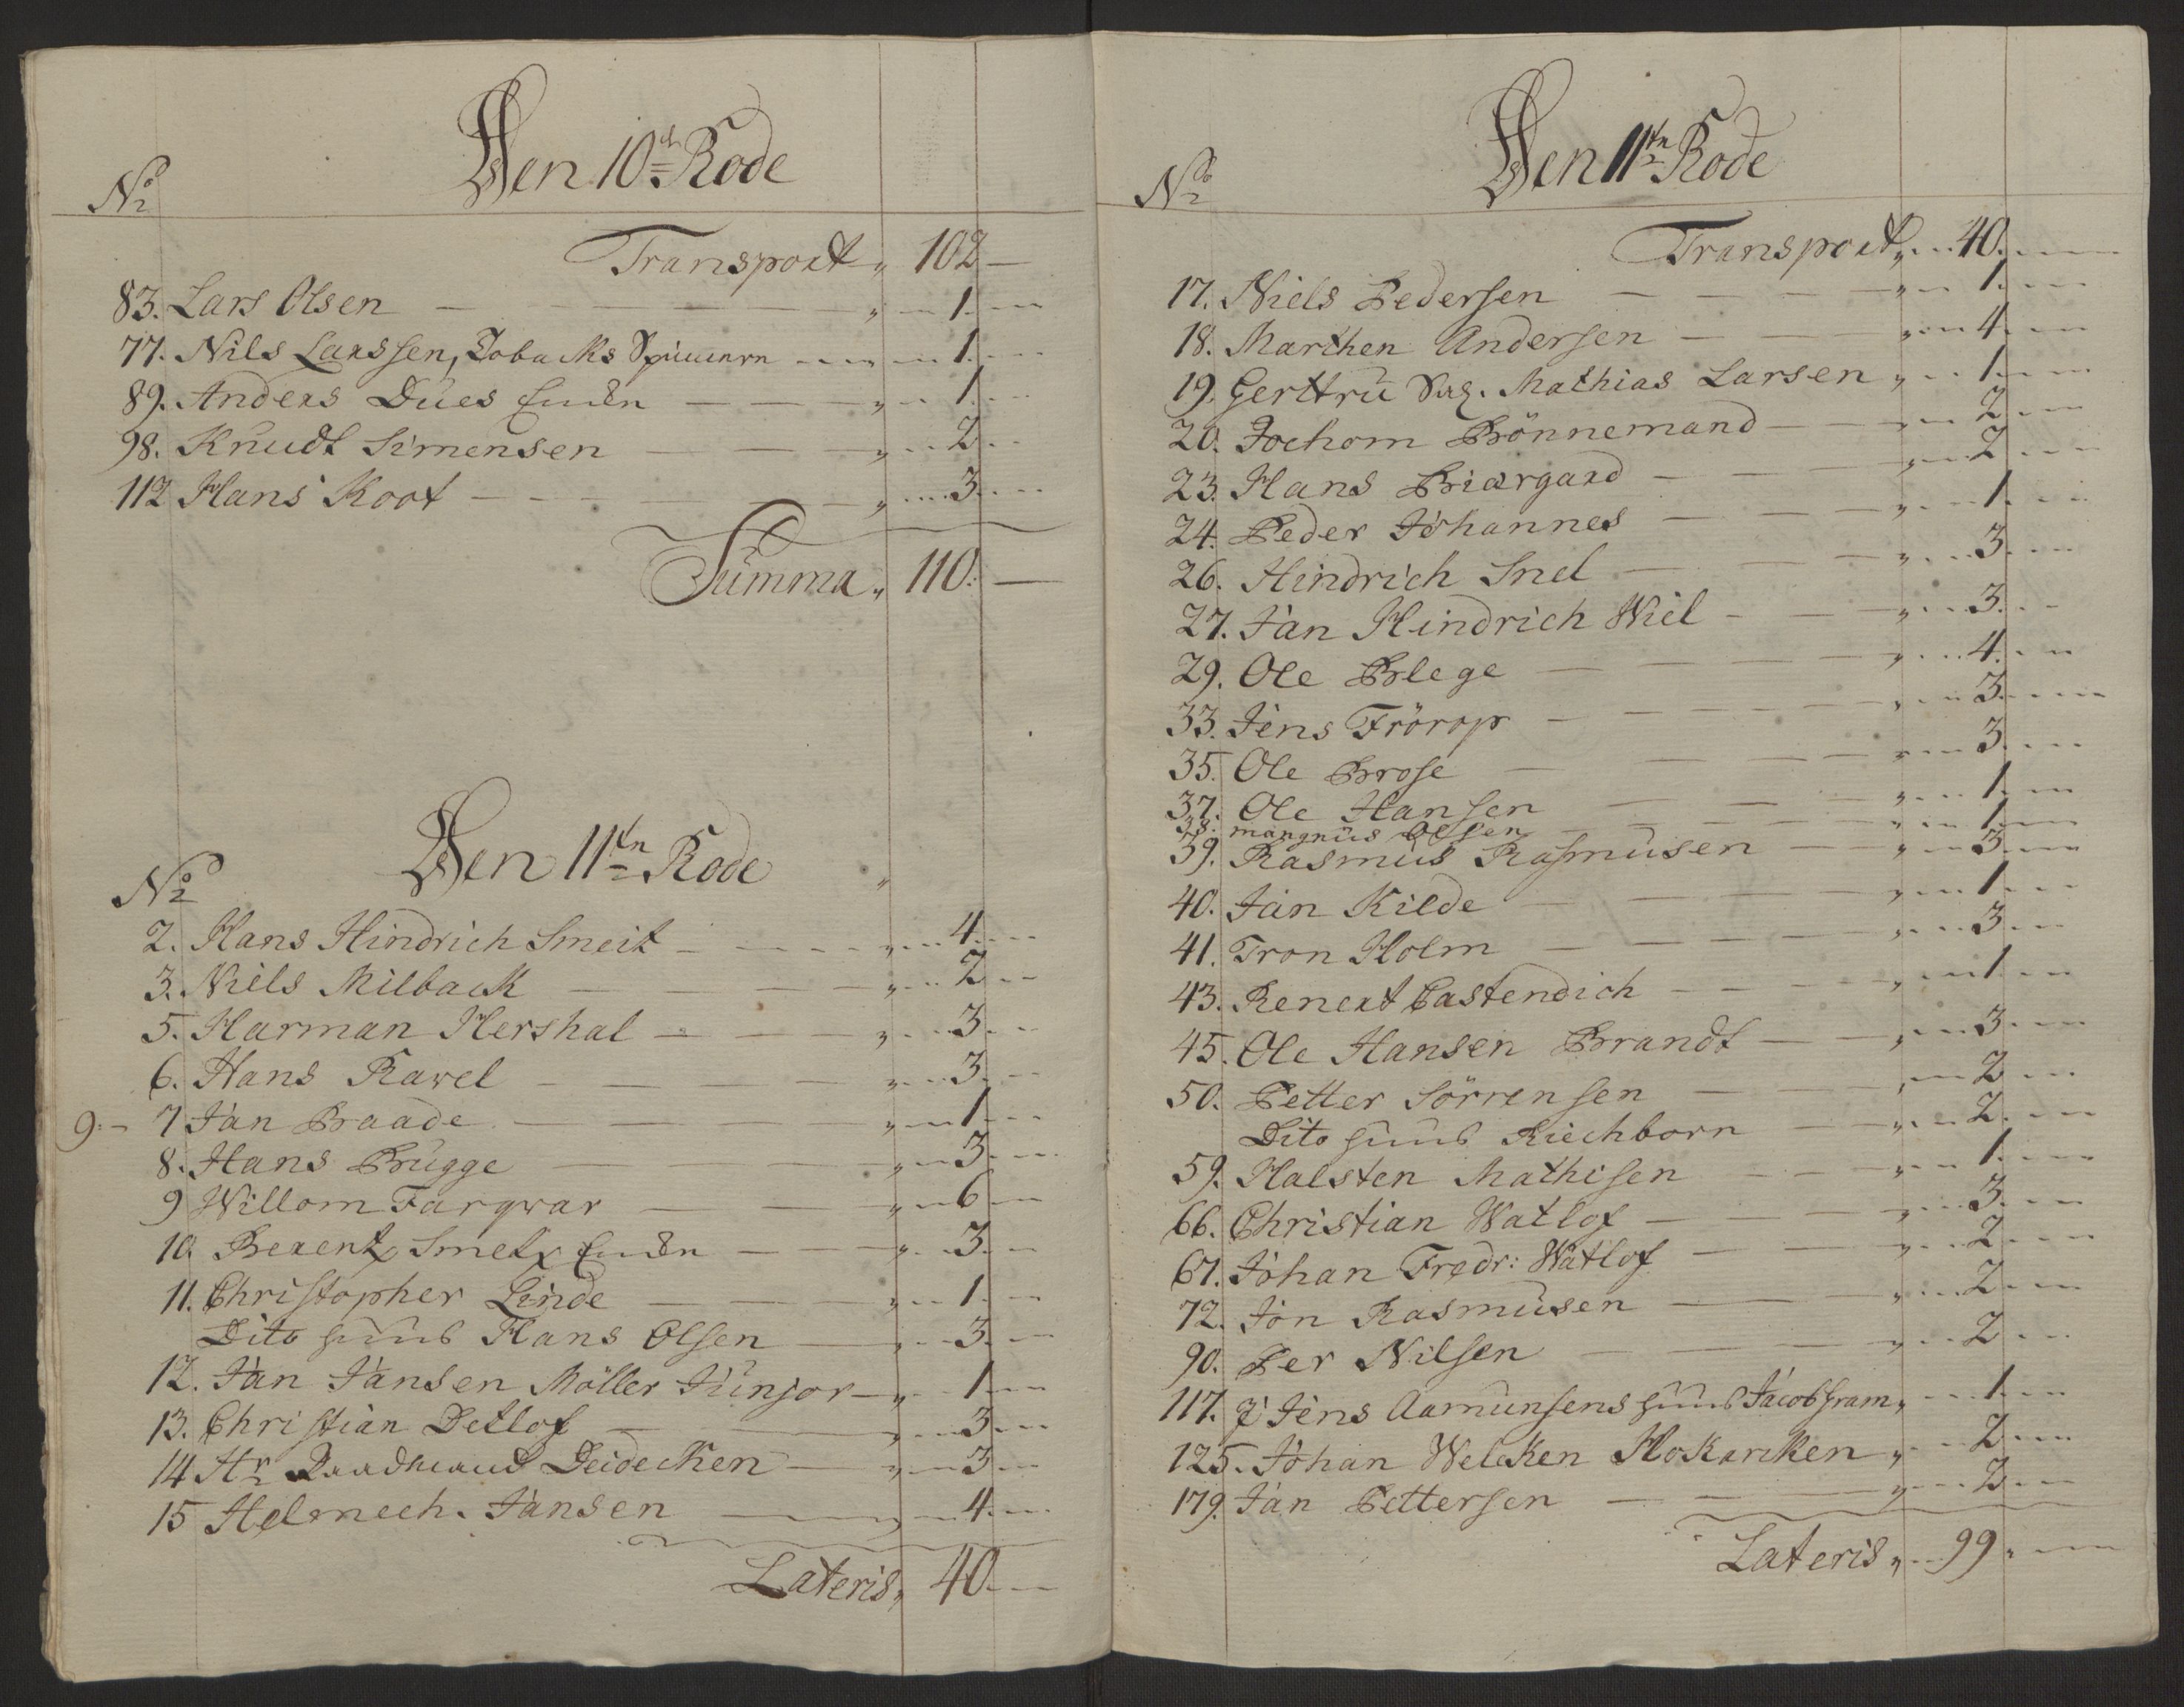 Den 10d Rode
No
Transport „ 102 —
83. Lars Olsen — „ 1.
77. Nils Larssen, Tobacks Spinnern „ 1.
89. Anders Dües Encken „ 1.
98. Knudt Simensen „ 2
112 Hans Koot „ 3.
Summa „ 110. —
Den 11ten Rode
No
2. Hans Hindrich Smeit „ 4.
3. Niels Milback „ 2
5. Harman Hershal „ 3.
6. Hans Ravel „ 3.
9. – 7 Jan Braade „ 1.
8. Hans Brügge „ 3.
9 Willom Farqvar „ 6
10. Berent Smelx Encken „ 3.
11. Christopher Linde „ 1.
Dito huus Hans Olsen „ 3.
12. Jan Jansen Möller Junjor „ 1.
13. Christian Detlof „ 3.
14 Hr Raadmand Deidecken „ 3
15 Helmech. Jansen „ 4.
Lateris „ 40.
Den 11ten Rode
No
Transport „ 40.
17. Niels Pedersen „ 1.
18. Marthen Andersen „ 4.
19. Gerttru Sal. Mathias Larsen „ 1.
20. Jochom Brönnemand „ 2
23. Hans Biærgard „ 2
24. Peder Johannes „ 1.
26. Hindrich Snel „ 3.
27. Jan Hindrich Wiel „ 3.
29. Ole Blege „ 4.
33. Jens Frörop „ 3.
35. Ole Brose „ 3.
37. Ole Hansen „ 1.
38. mangnüs Olsen „ 1.
39. Rasmüs Rasmüsen „ 3.
40. Jan Kilde „ 1.
41. Tron Holm „ 3.
43. Renert Castendich „ 1.
45. Ole Hansen Brandt „ 3.
50. Petter Sörrensen „ 2
Dito huus Riechborn „ 2.
59. Halsten Mathisen „ 1.
66. Christian Watlof „ 3.
67. Johan Fredr: Watlof „ 2
72. Jon Rasmüsen „ 2
90. Per Nilsen „ 2
117. I Jens Aamunsens huus Jacob Gram „ 1.
125. Johan Welcken Hokanken „ 2
179. Jan Pettersen „ 2
Lateris „ 99.